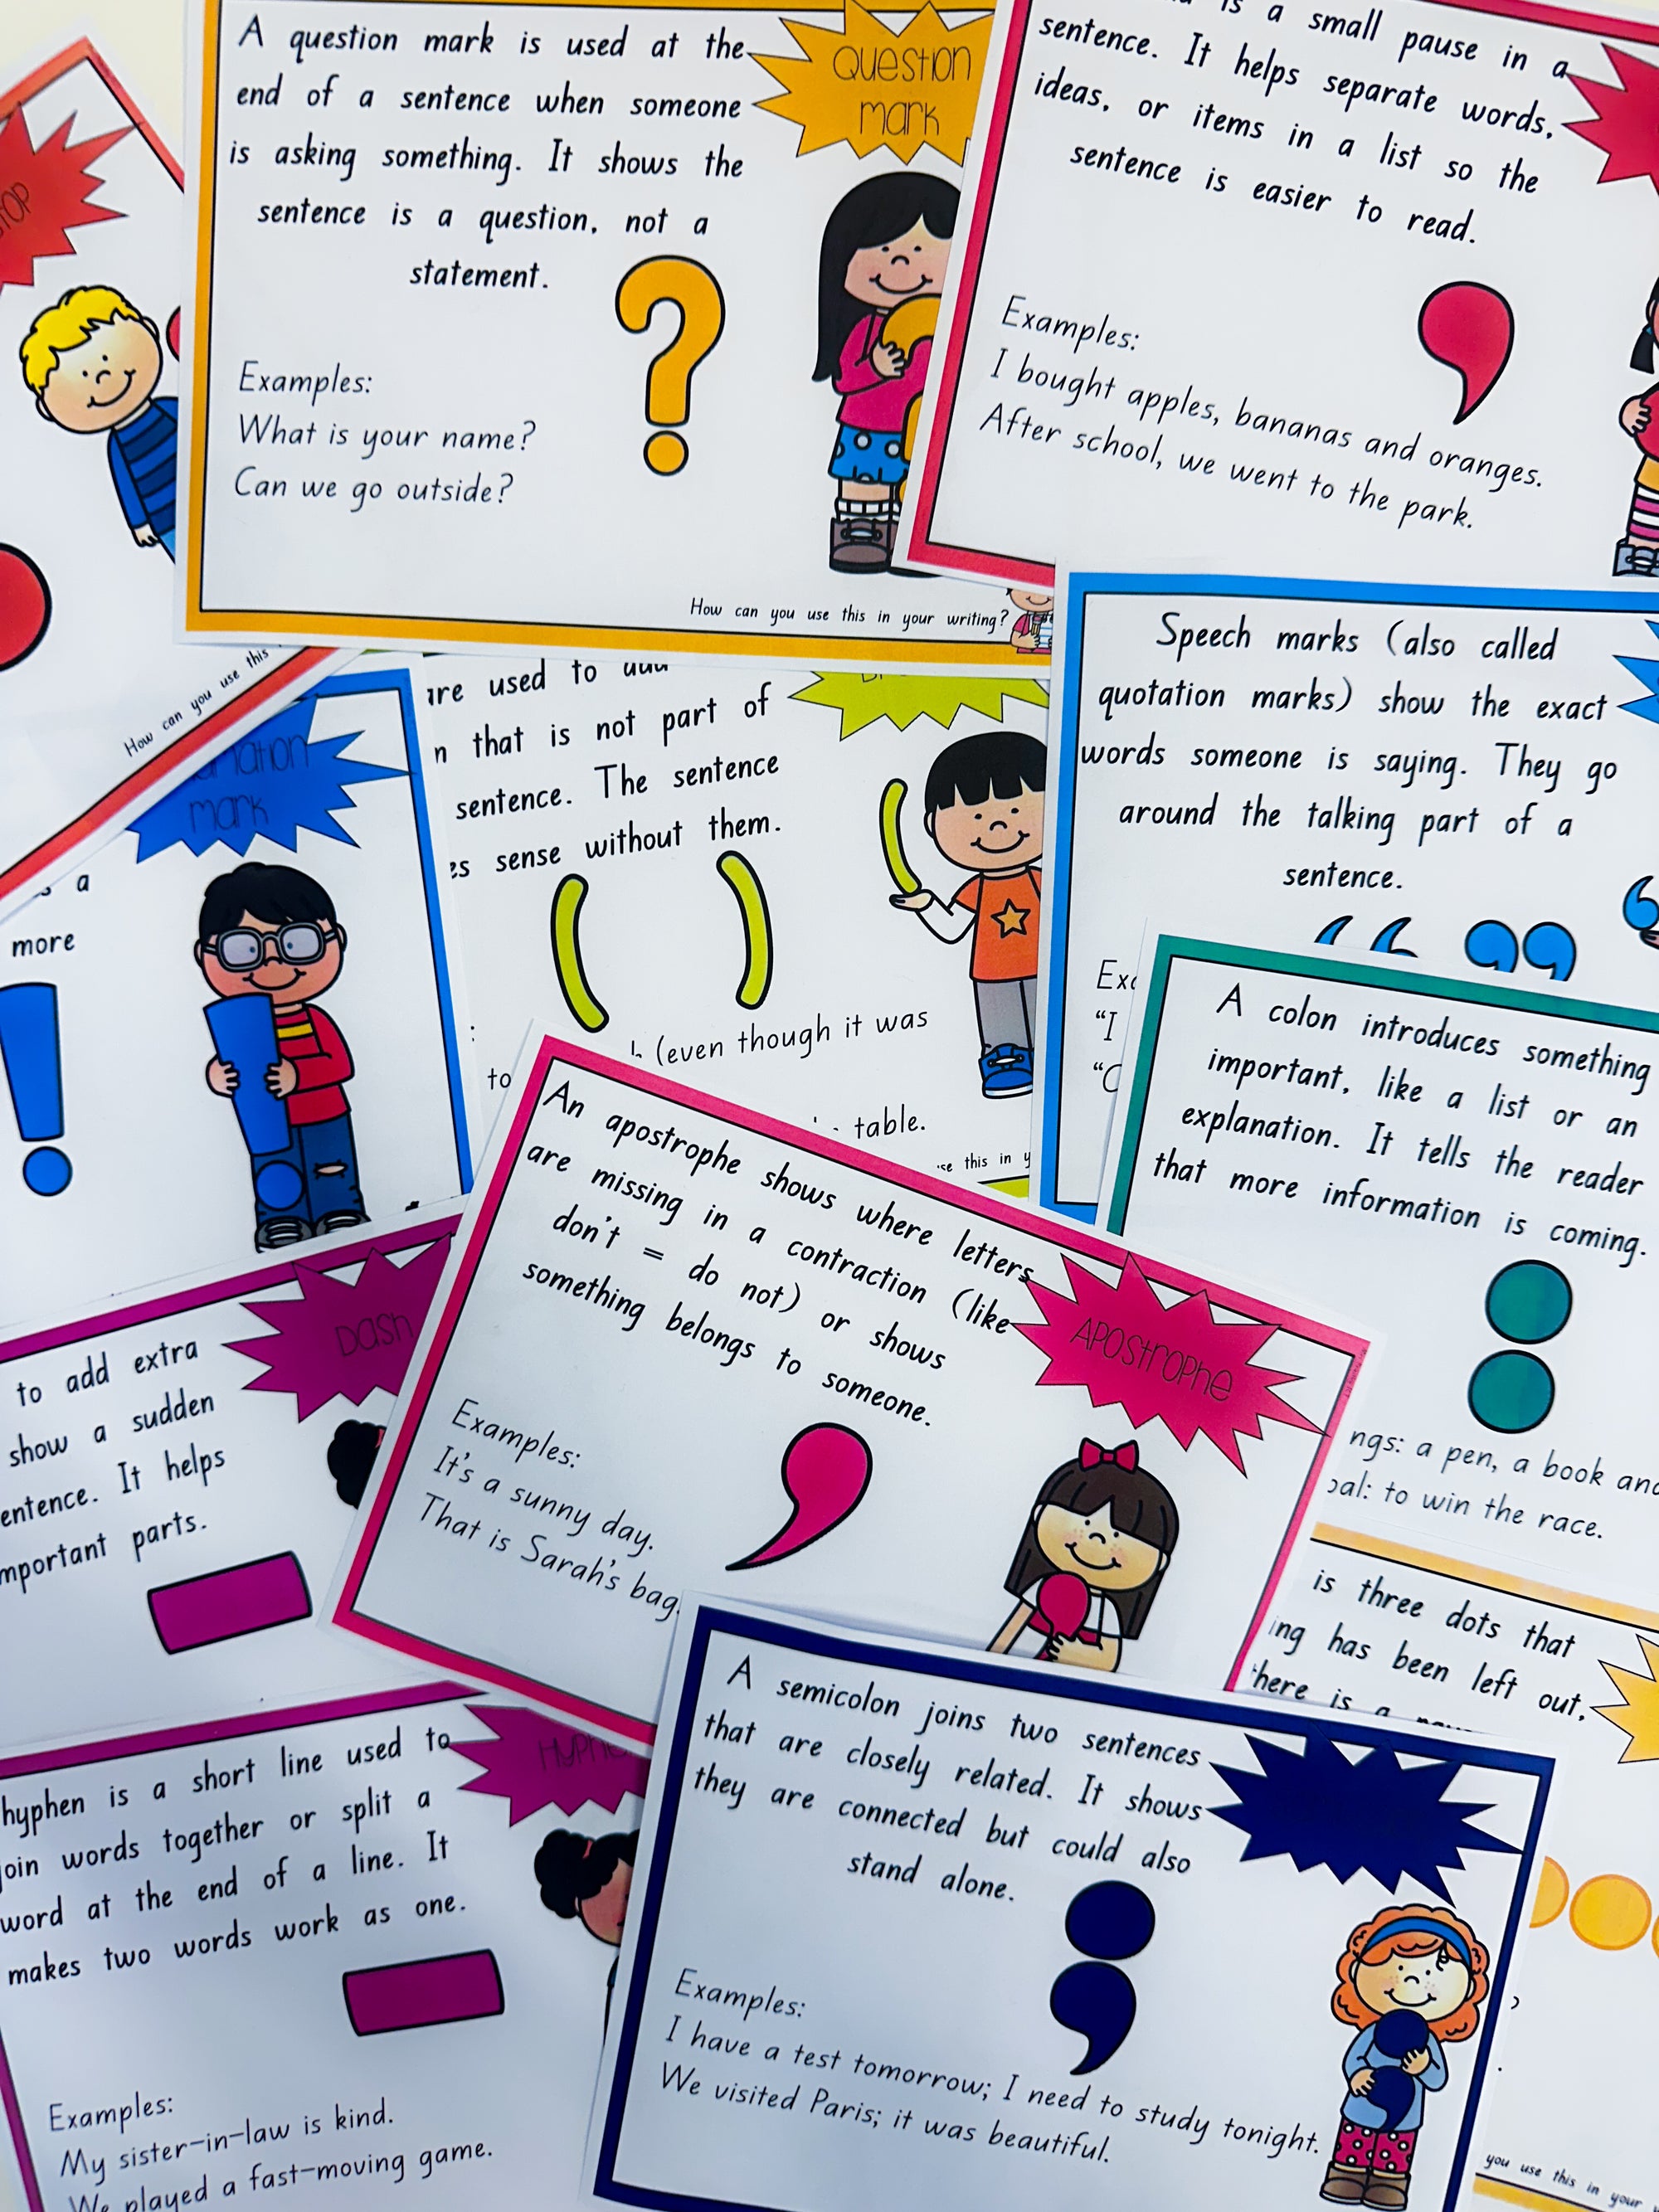 STOP
How can you use this
A question mark is used at the
end of a sentence when someone
is asking something. It shows the
sentence is a question, not a
statement.
Question
mark
Examples:
What is your name?
Can we go outside?
How can you use this in your writing?
is a small pause in a
sentence. It helps separate words,
ideas, or items in a list so the
sentence is easier to read.
Examples:
I bought apples, bananas and oranges.
After school, we went to the park.
mark
a
more
are used to
that is not part of
sentence. The sentence
sense without them.
(even though it was
to
table.
this in
Speech marks (also called
quotation marks) show the exact
words someone is saying. They go
around the talking part of a
sentence.
“I
A colon introduces something
important, like a list or an
explanation. It tells the reader
that more information is coming.
a pen, a book
to win the race.
Dash
to add extra
show a sudden
It helps
parts.
An apostrophe shows where letters
are missing in a contraction (like
don't = do not) or shows
something belongs to someone.
Apostrophe
Examples:
It's a sunny day.
That is Sarah's bag.
is three dots that
has been left out,
is a
hyphen is a short line used to
join words together or split a
word at the end of a line. It
makes two words work as one.
Examples:
My sister-in-law is kind.
We played a fast-moving game.
A semicolon joins two sentences
that are closely related. It shows
they are connected but could also
stand alone.
Examples:
I have a test tomorrow; I need to study tonight.
We visited Paris; it was beautiful.
you use this in your